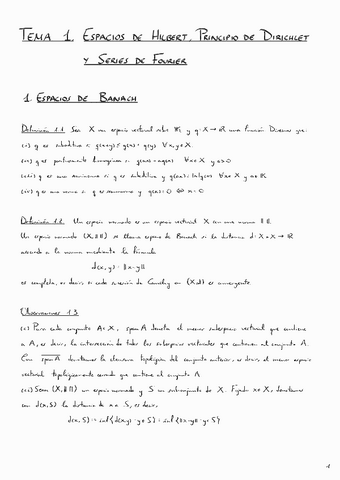 TEMA 1. ESPACIOS DE HILBERT, PRINCIPIO DE DIRICHLET
Y SERIES DE FOURIER
1. ESPACIOS DE BANACH
Definición 1.1. Sea X un espacio vectorial sobre ℝ y q: X → ℝ una función. Diremos que:
(i) q es subaditiva si q(x+y) ≤ q(x) + q(y) ∀x,y ∈ X.
(ii) q es positivamente homogénea si q(αx) = αq(x) ∀x ∈ X y α>0
(iii) q es una seminorma si q es subaditiva y q(αx) = |α|q(x) ∀x ∈ X y α ∈ ℝ.
(iv) q es una norma si q es seminorma y q(x) = 0 ⇔ x = 0
Definición 1.2. Un espacio normado es un espacio vectorial X con una norma ‖·‖.
Un espacio normado (X, ‖·‖) se llama espacio de Banach si la distancia d: X × X → ℝ
asociada a la norma mediante la fórmula
d(x,y) = ‖x-y‖
es completa, es decir, si cada sucesión de Cauchy en (X,d) es convergente.
Observaciones 1.3.
(i) Para cada conjunto A ⊂ X, span A denota el menor subespacio vectorial que contiene
a A, es decir, la intersección de todos los subespacios vectoriales que contienen al conjunto A.
Con span A denotamos la clausura topológica del conjunto anterior, es decir, el menor espacio
vectorial topológicamente cerrado que contiene al conjunto A.
(ii) Sean (X, ‖·‖) un espacio normado y S un subconjunto de X. Fijado x ∈ X, denotamos
con d(x,S) la distancia de x a S, es decir,
d(x,S) = inf{d(x,y): y ∈ S} = inf{‖x-y‖: y ∈ S}
1